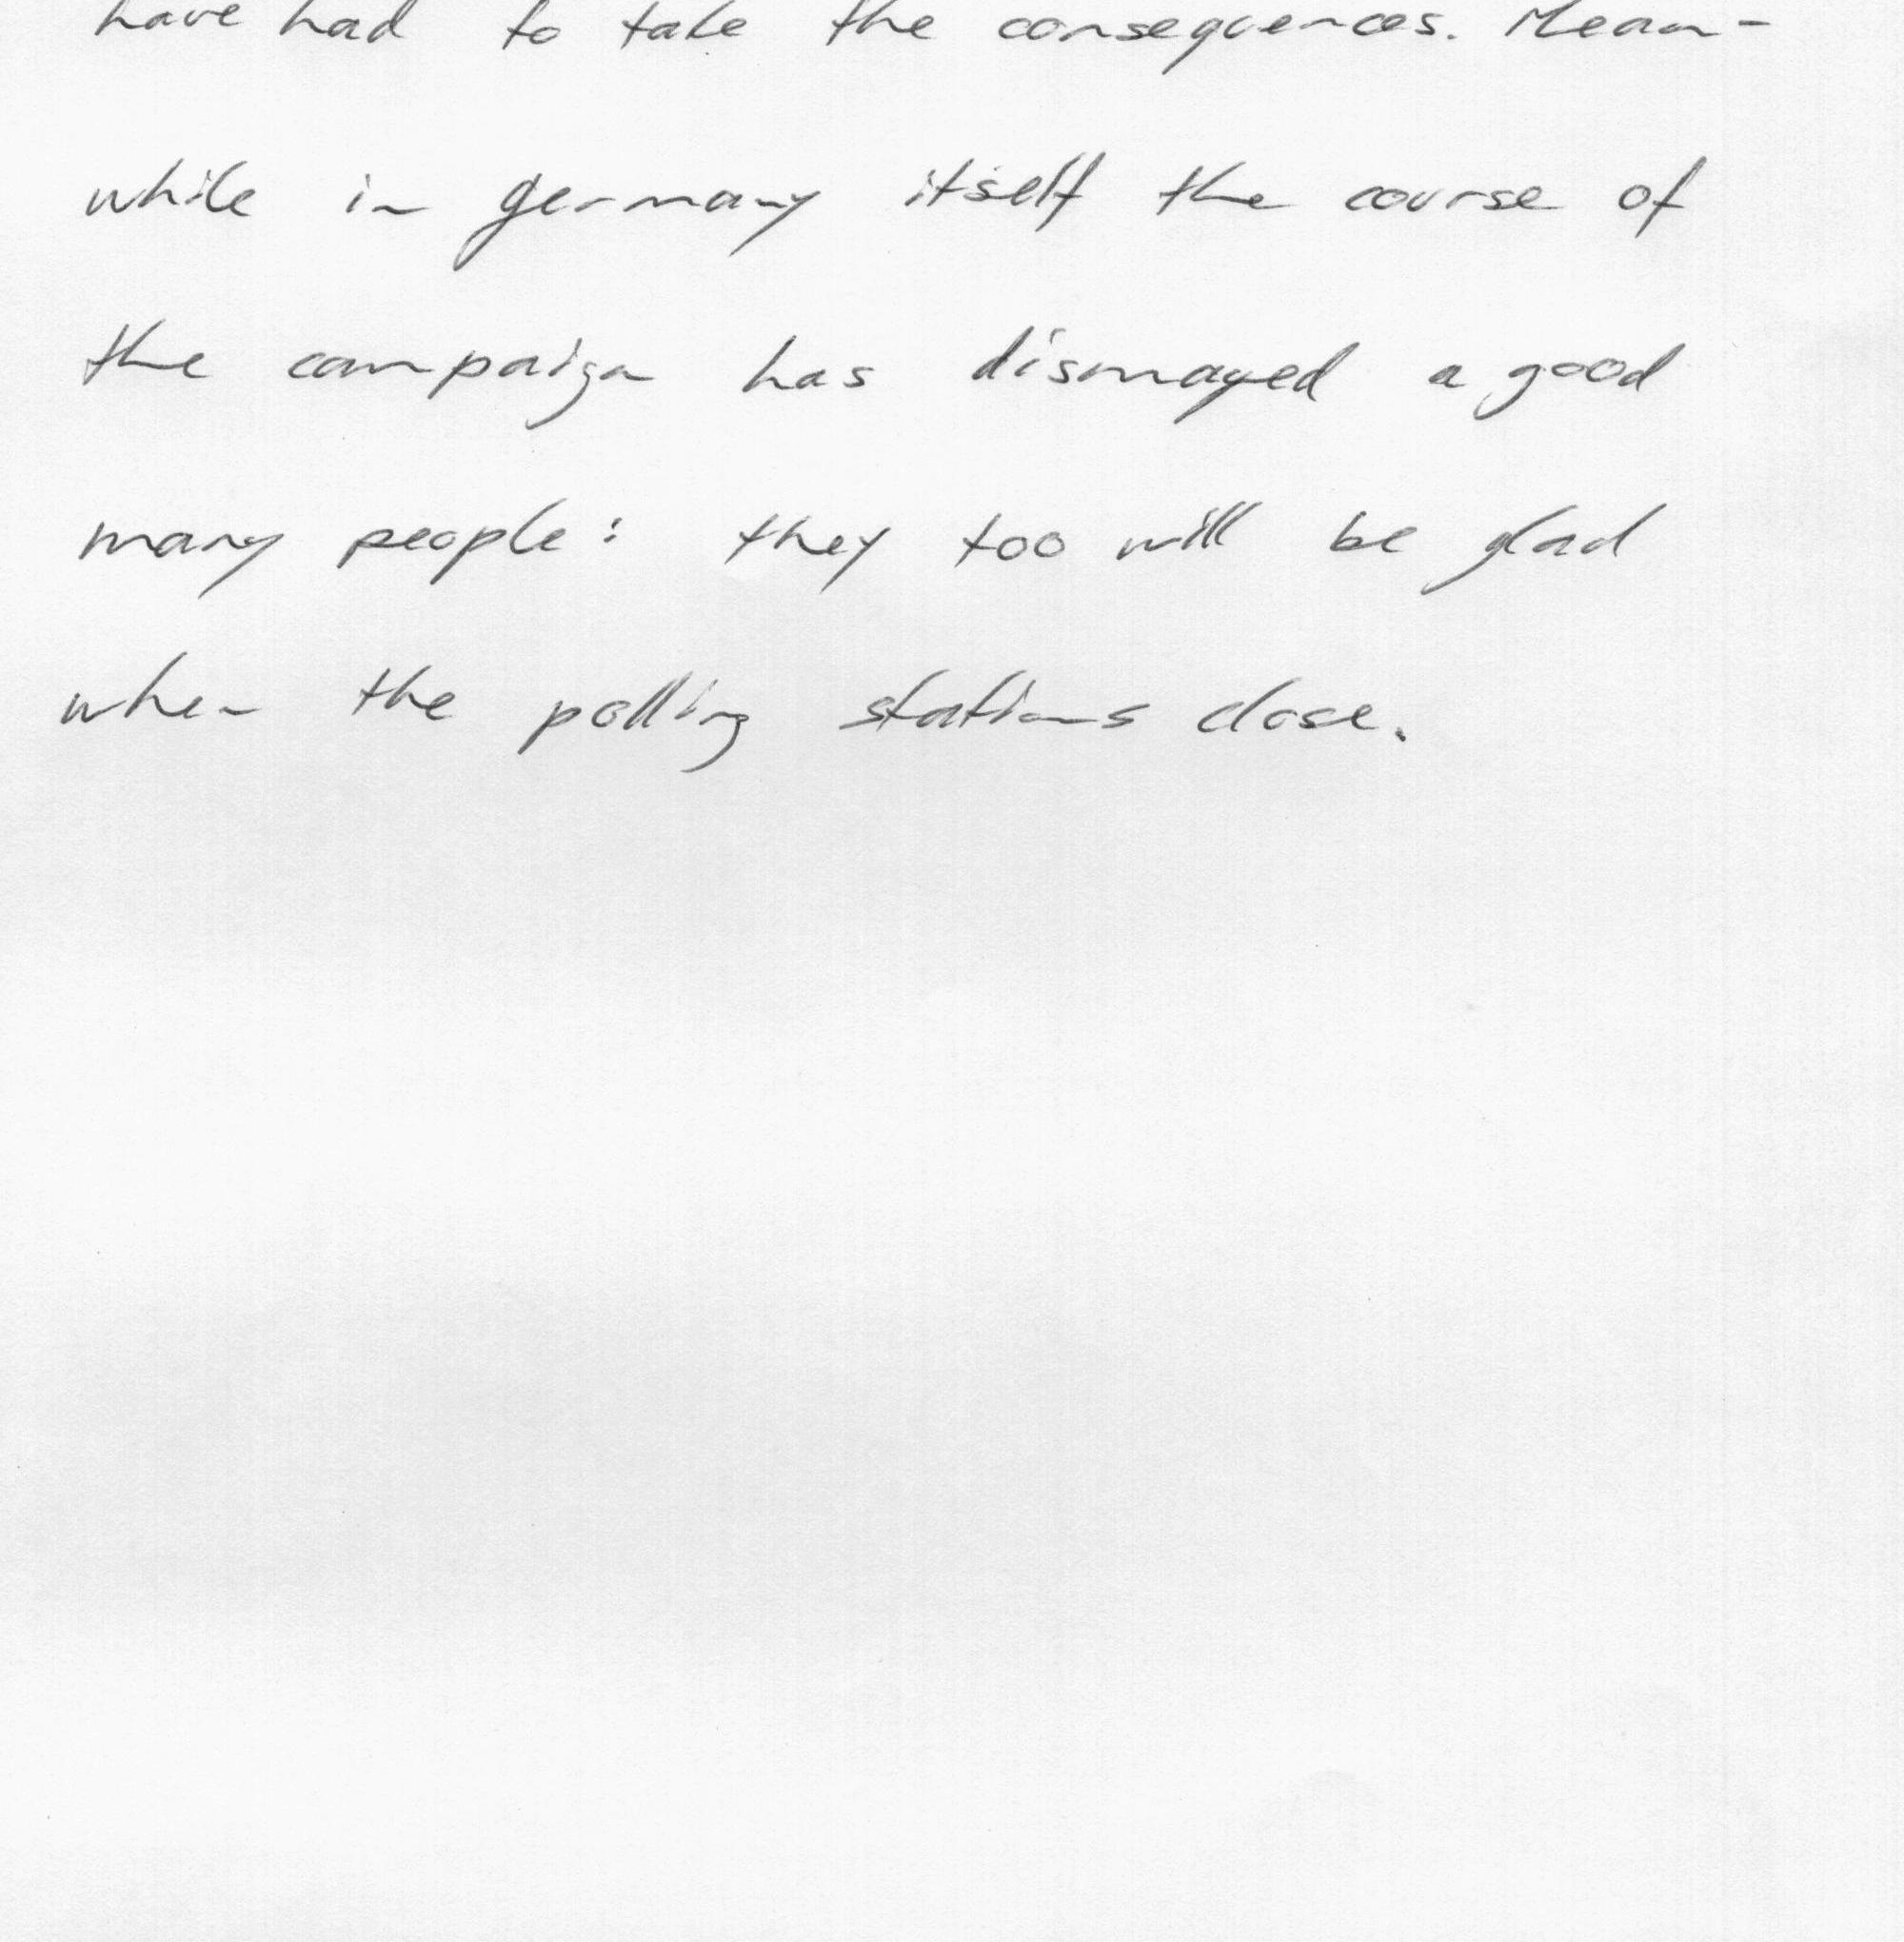 have had to take the consequences. Mean-
while in Germany itself the course of
the campaign has dismayed a good
many people: they too will be glad
when the polling stations close.